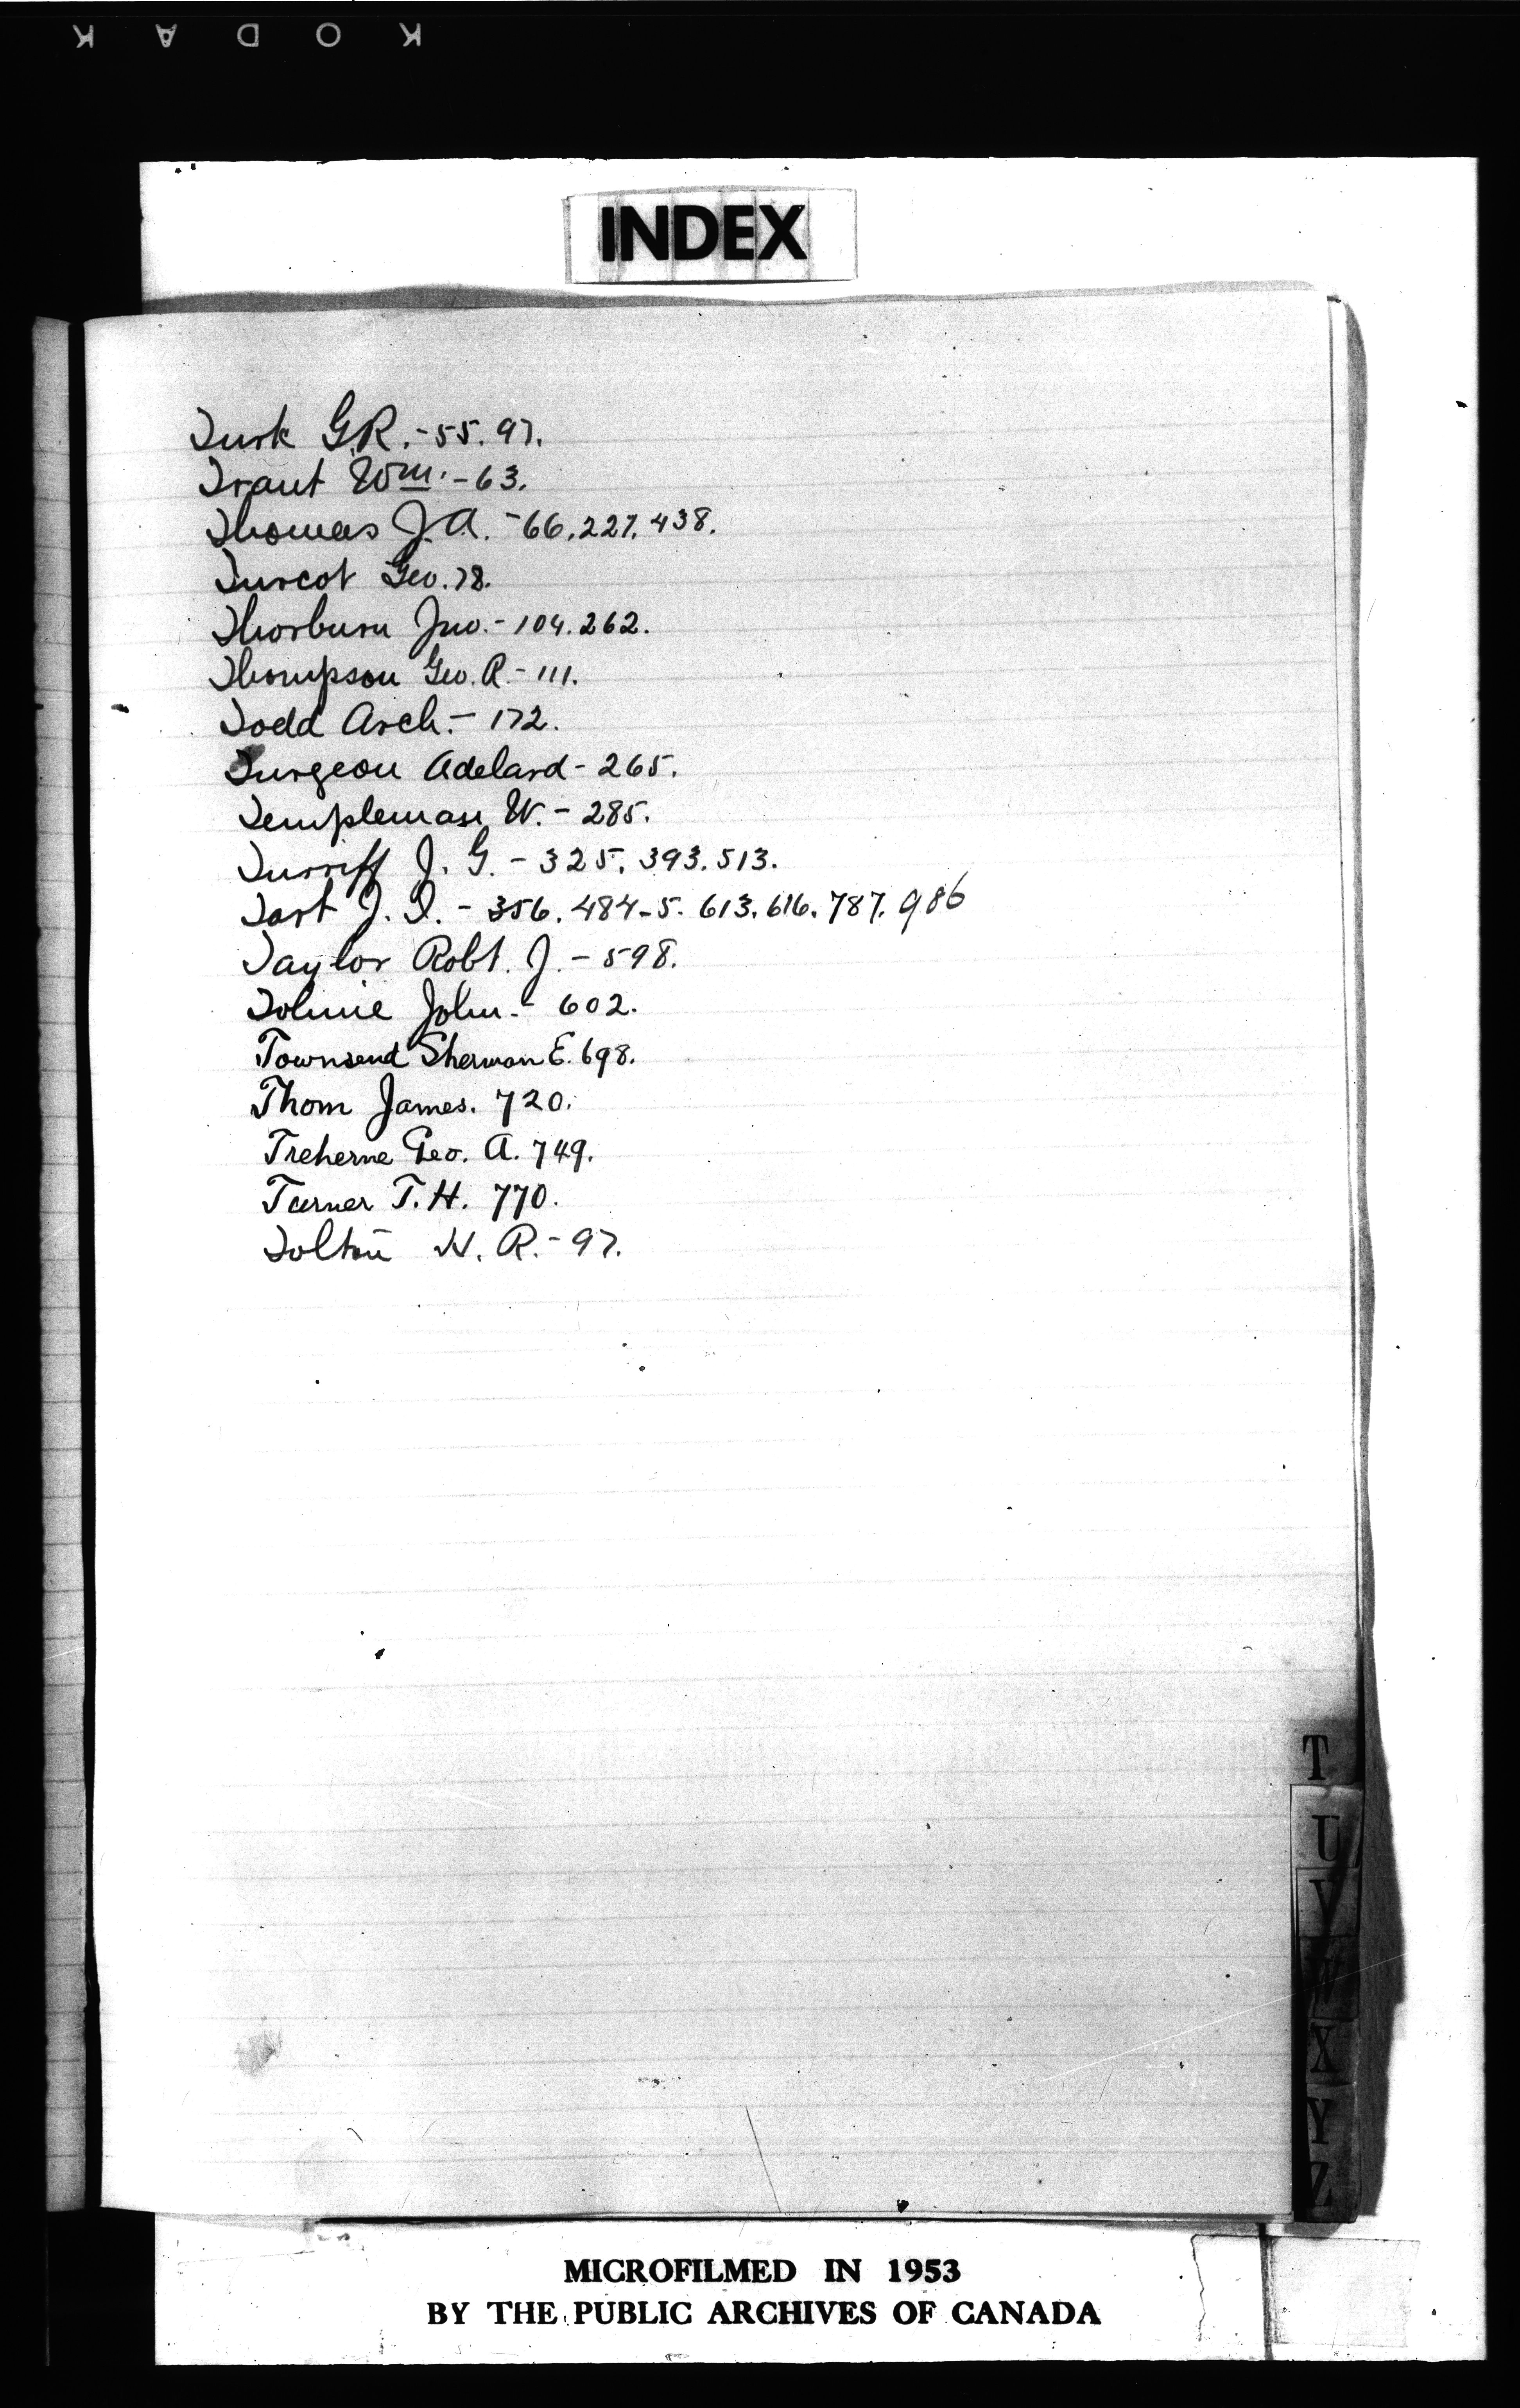 KODAK
INDEX
Turk G.R. - 55. 97.
Trant Wm. - 63.
Thomas J.A. - 66. 227. 438.
Turcot Geo. 78.
Thorburn Jno. - 104. 262.
Thompson Geo. A. - 111.
Todd Arch. - 172.
Turgeon Adelard - 265.
Templeman W. - 285.
Turriff J. G. - 325. 393. 513.
Tart J. I. - 356. 484-5. 613. 616. 787. 986
Taylor Robt. J. - 598.
Tolmie John. - 602.
Townsend Sherman E. 698.
Thom James. 720.
Treherne Geo. A. 749.
Turner T. H. 770.
Tolton H. R. - 97.
T
U
V
W
X
Y
Z
MICROFILMED IN 1953
BY THE PUBLIC ARCHIVES OF CANADA